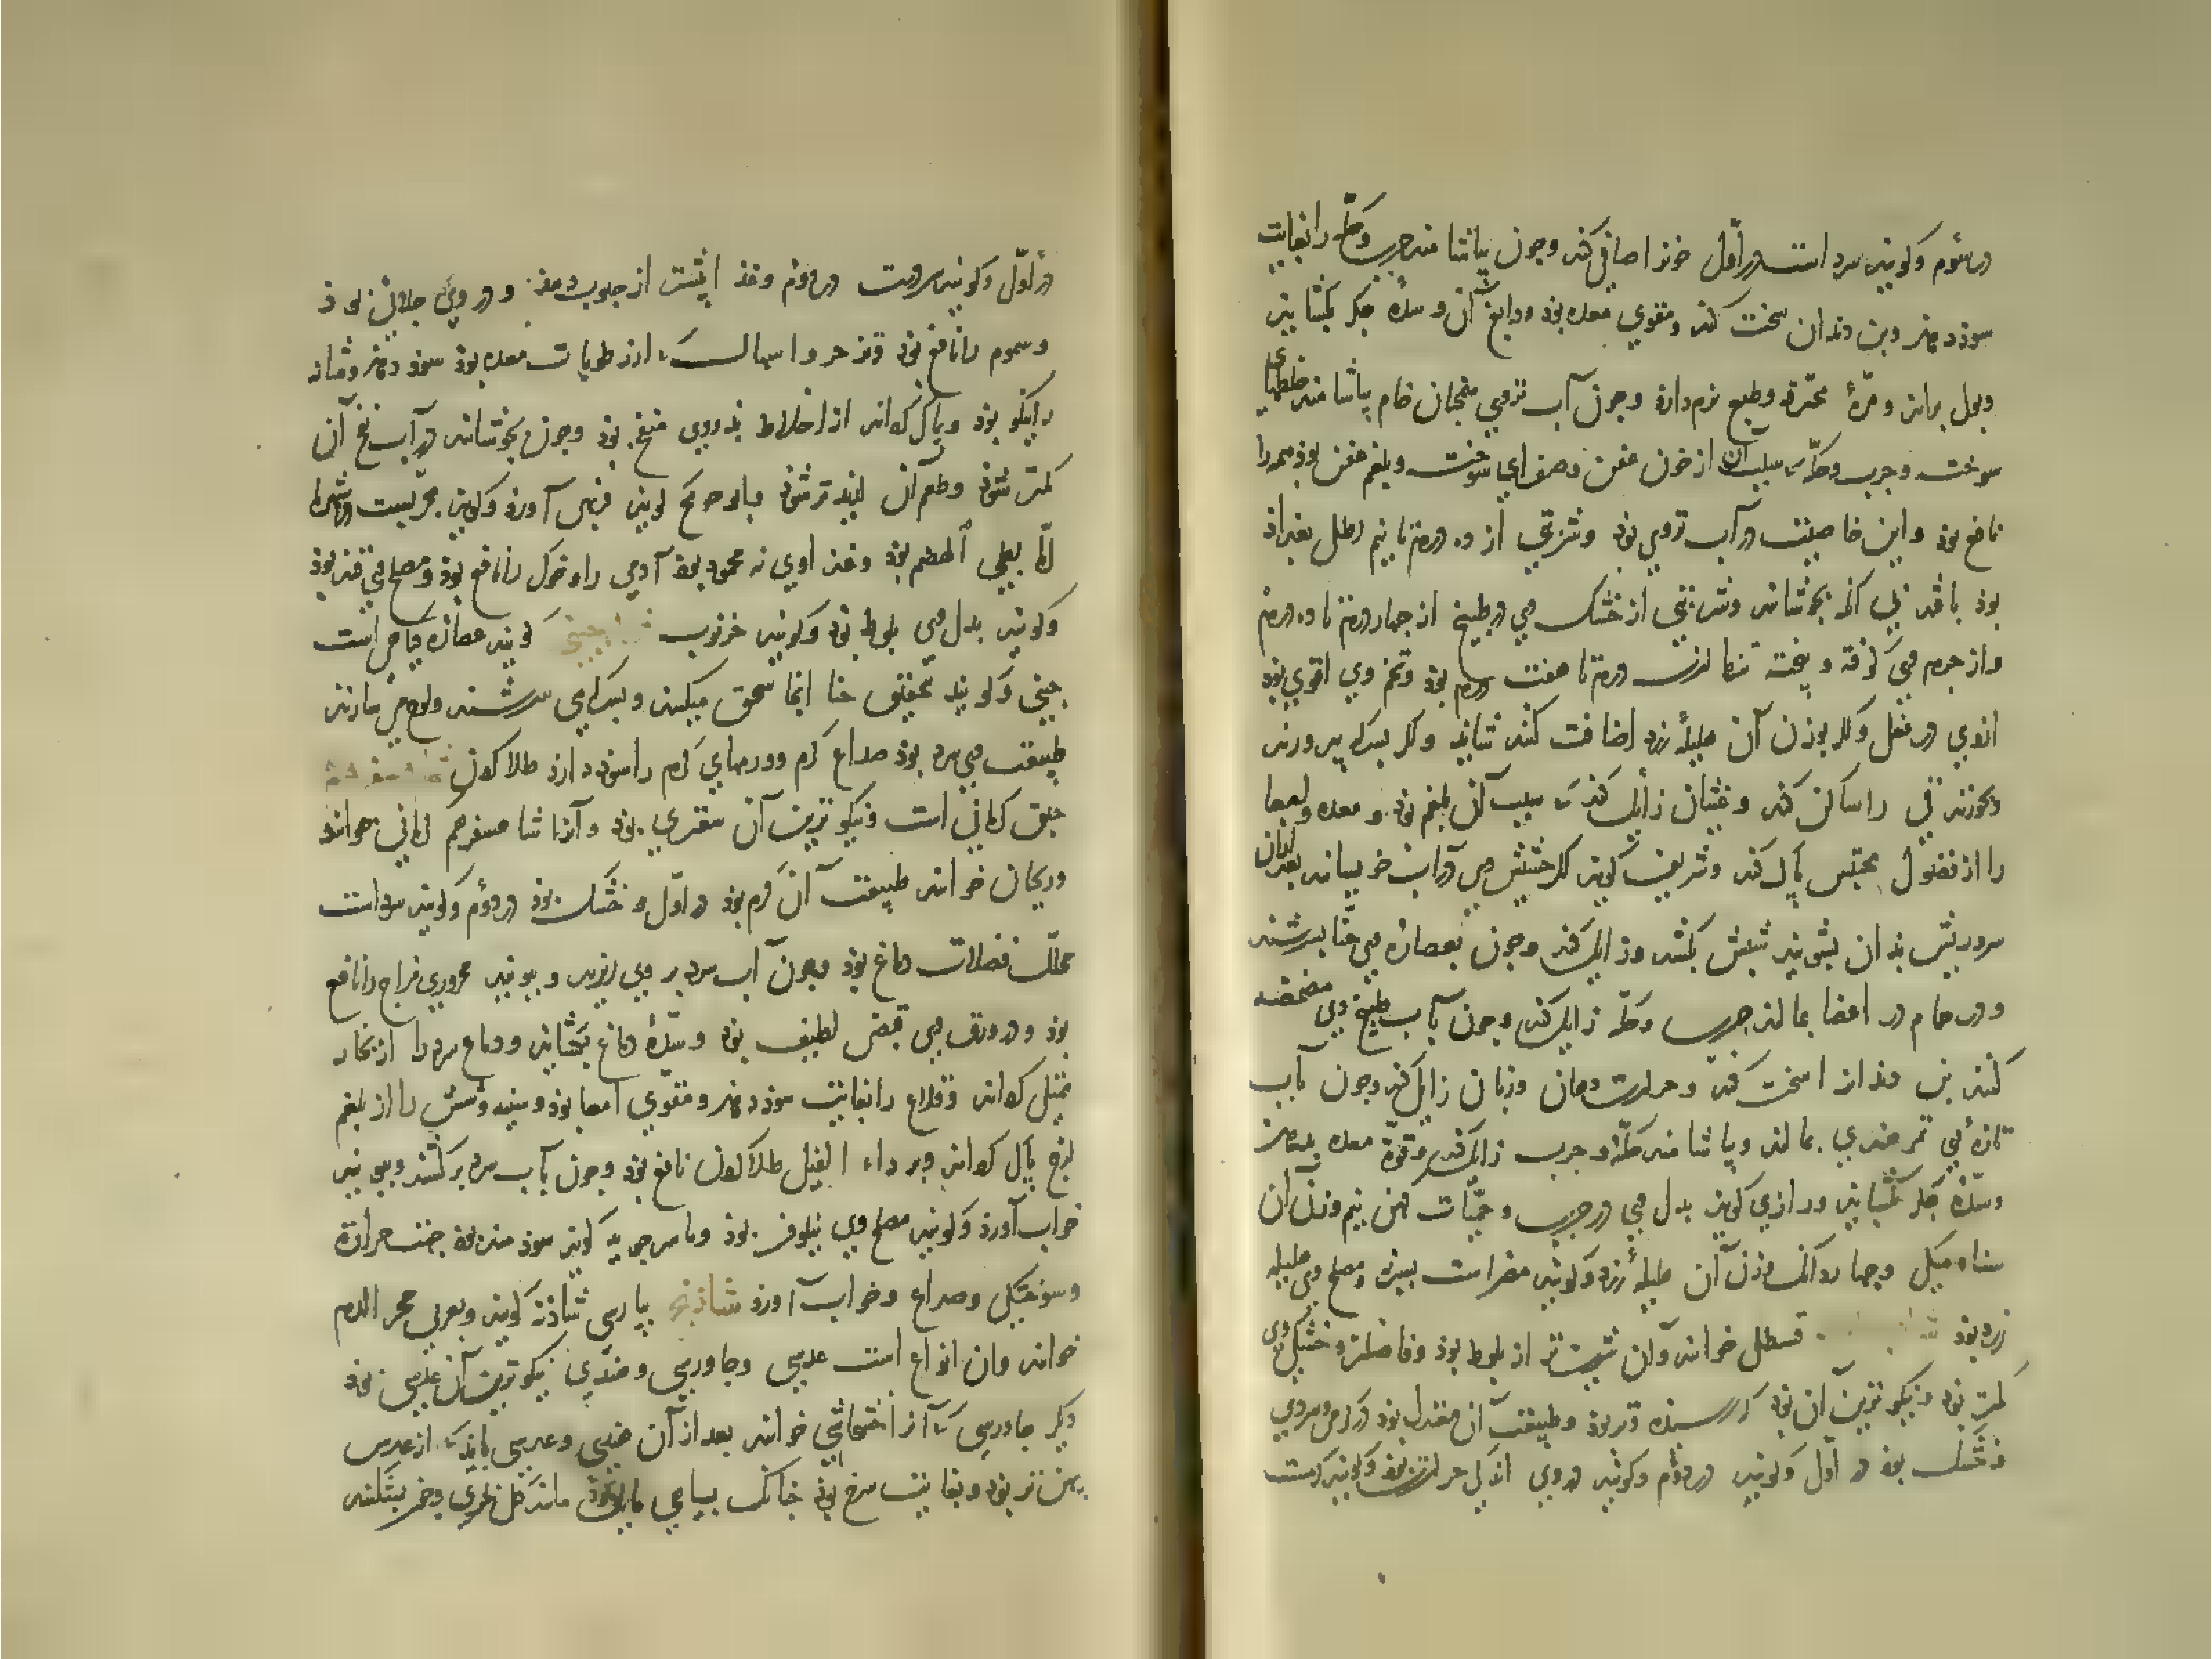 در سوم و کویند سرد است در اول خونرا صافی کند و چون بیاشامند جرب و حکه را بغایت
سود دهد و بن دندان سخت کند و مقوی معده بود و دابغ آن و سده جکر بکشاید
و بول براند و مرهٔ محترق و طبع نرم دارد و چون آب تر وی همجنان خام بیاشامند خلطهای
سوخته و جرب و حکه که سبب آن از خون عفن و صفرای سوخته و بلغم عفن بود همه را
نافع بود و این خاصیت در آب تر وی بود و شربتی از ده درم تا نیم رطل بغدادی
بود با قند بی آنک بجوشانند و شربتی از خشک وی در طبیخ از جهار درم تا ده درم
و از جرم وی کوفته و پخته تنها از سه درم تا هفت درم بود و تخم وی اقوی بود
از وی در فعل و کر بوزن آن هلیلهٔ زرد اضافت کنند شاید و کر بسرکه بپرورند
و بخورند قی را ساکن کند و غثیان زایل کند که سبب آن بلغم بود و معده و امعا
را از فضول محتبس پاک کند و شریف کوید کر خشکش وی در آب خویسانند بعد از آن
سر و ریش بدان بشویند شبش بکشد و زایل کند و چون بعصارهٔ وی حنا بسرشند
و در حمام در اعضا بمالند جرب و حکه زایل کند و چون بآب طبیخ وی مضمضه
کنند بن دندانرا سخت کند و حرارت دهان و زبان زایل کند و چون بآب
تازهٔ وی تمر هندی بمالند و بیاشامند حکه و جرب زایل کند و قوة معده بدهد
و سدهٔ جکر بکشاید و رازی کوید بدل وی در جرب و حمیات کهن نیم وزن آن
سناء مکی و جهار دانک وزن آن هلیلهٔ زرد و کویند مضر است بسپرز و مصلح وی هلیله
زرد بود قسطل خوانند و آن شیرین تر از بلوط بود و فاضلتر و خشکی وی
کمتر بود و نیکوترین آن بود که رسیده و تر بود و طبیعت آن معتدل بود در کرمی و سردی
و خشک بود در اول و کویند در دوم و کویند در وی اندکی حرارت بود و کویند کرمست
در اول و کویند سردست در دوم و غذا
و سموم را نافع بود معده بود سود دهد و مثانه
را نیکو بود و پاک کرداند از اخلاط بد و چون بجوشانند در آب نفخ آن
کمتر شود و طعم آن لذیذتر شود فربهی آورد و کویند
اما بطی الهضم بود و غذا وی نه محمود بود آدمی را و خوک را نافع بود و مصلح وی قند بود
و کویند بدل وی بلوط بود و کویند خرنوب کویند عصاره کیاهی است
جینی و کویند بتحقیق حنا آنجا سحق میکنند و بسرکه می سرشند و لوح می سازند
طبیعت وی سرد بود صداع کرم و ورمهای کرم را سود دارد طلا کردن
حبق کرمانی است و نیکوترین آن سعتری بود و آنرا شاهسفرم کرمانی خوانند
و ریحان خوانند طبیعت آن کرم بود در اول و خشک بود در دوم و کویند سرد است
محلل فضلات دماغ بود و چون آب سرد بر وی ریزند و ببویند محروری مزاج را نافع
بود و در ورق وی قبض لطیف بود و سدهٔ دماغ بکشاید و دماغ سرد را از بخار
ممتلی کرداند و قلاع را بغایت سود دهد و مقوی امعا بود و سینه و شش را از بلغم
لزج پاک کرداند و بر داء الفیل طلا کردن نافع بود و چون بآب سرد برکشند و ببویند
خواب آورد و کویند مصلح وی نیلوفر بود و ماسرجویه کوید سود مند بود جهت حرارة
و سوختکی و صداع و خواب آورد شاذنج بپارسی شاذنه کویند و بعربی حجر الدم
خوانند و آن انواع است عدسی و جاورسی و هندی نیکوترین آن عدسی بود
دیکر جاورسی که آنرا خشخاشی خوانند بعد از آن هندی و عدسی باید که از عدس
پهن تر بود و بغایت سرخ بود جنانک بسیاهی مایل بود مانند کل و جون بشکنند